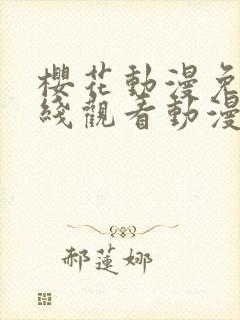 櫻花動漫免
綫觀看動漫
郝蓮娜